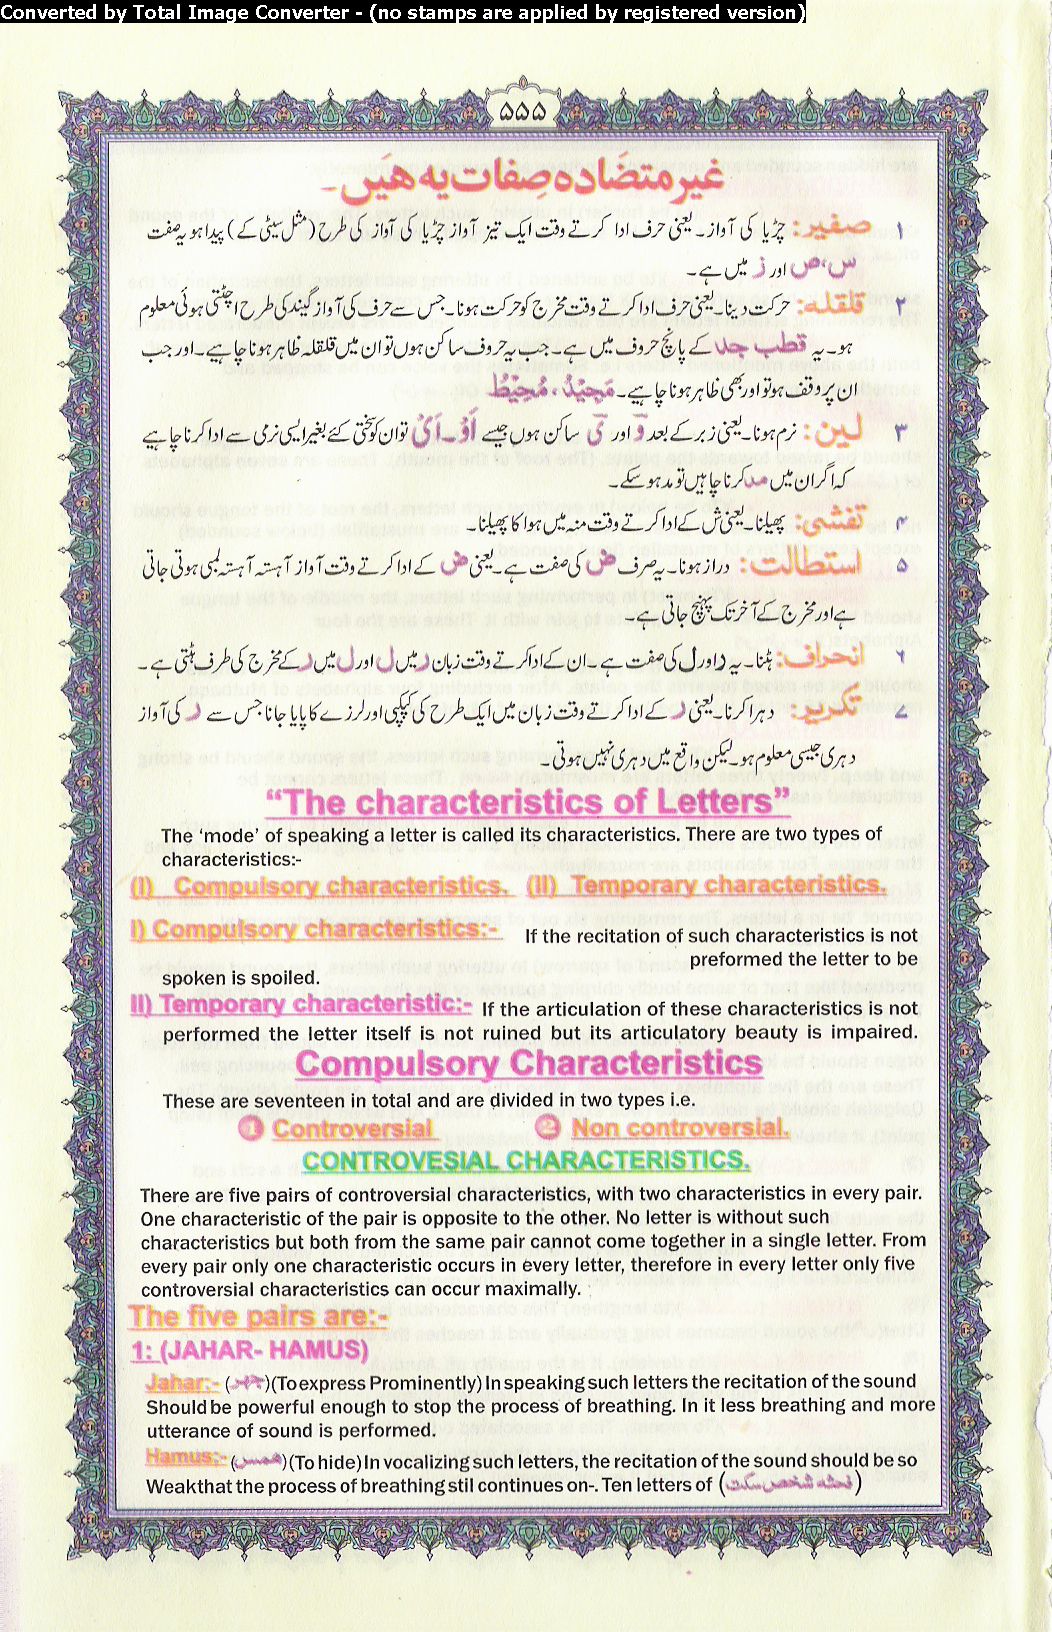 Converted by Total Image Converter - (no stamps are applied by registered version)
۵۵۵
غیر متضادہ صفات یہ ہیں۔
۱ صفیر: چڑیا کی آواز۔ یعنی حرف ادا کرتے وقت ایک تیز آواز چڑیا کی آواز کی طرح (مثل سیٹی کے) پیدا ہو یہ صفت
س، ص اور ز میں ہے۔
۲ قلقلہ: حرکت دینا۔ یعنی حرف ادا کرتے وقت مخرج کو حرکت ہونا۔ جس سے حرف کی آواز گیند کی طرح اچٹتی ہوئی معلوم
ہو۔ یہ قطب جد کے پانچ حروف میں ہے۔ جب یہ حروف ساکن ہوں تو ان میں قلقلہ ظاہر ہونا چاہیے۔ اور جب
ان پر وقف ہو تو اور بھی ظاہر ہونا چاہیے۔ مَجِیْدٌ، مُحِیْطٌ
۳ لین: نرم ہونا۔ یعنی زبر کے بعد و اور ی ساکن ہوں جیسے اَوْ۔ اَیْ تو ان کو سختی کئے بغیر ایسی نرمی سے ادا کرنا چاہیے
کہ اگر ان میں مد کرنا چاہیں تو مد ہو سکے۔
۴ تفشی: پھیلنا۔ یعنی ش کے ادا کرتے وقت منہ میں ہوا کا پھیلنا۔
۵ استطالت: دراز ہونا۔ یہ صرف ض کی صفت ہے۔ یعنی ض کے ادا کرتے وقت آواز آہستہ آہستہ لمبی ہوتی جاتی
ہے اور مخرج کے آخر تک پہنچ جاتی ہے۔
۶ انحراف: ہٹنا۔ یہ ر اور ل کی صفت ہے۔ ان کے ادا کرتے وقت زبان ر میں ل اور ل میں ر کے مخرج کی طرف ہٹتی ہے۔
۷ تکریر: دہرا کرنا۔ یعنی ر کے ادا کرتے وقت زبان میں ایک طرح کی کپکپی اور لرزے کا پایا جانا جس سے ر کی آواز
دہری جیسی معلوم ہو۔ لیکن واقع میں دہری نہیں ہوتی۔
“The characteristics of Letters”
The ‘mode’ of speaking a letter is called its characteristics. There are two types of
characteristics:-
(I) Compulsory characteristics. (II) Temporary characteristics.
I) Compulsory characteristics:- If the recitation of such characteristics is not
preformed the letter to be
spoken is spoiled.
II) Temporary characteristic:- If the articulation of these characteristics is not
performed the letter itself is not ruined but its articulatory beauty is impaired.
Compulsory Characteristics
These are seventeen in total and are divided in two types i.e.
1 Controversial 2 Non controversial.
CONTROVESIAL CHARACTERISTICS.
There are five pairs of controversial characteristics, with two characteristics in every pair.
One characteristic of the pair is opposite to the other. No letter is without such
characteristics but both from the same pair cannot come together in a single letter. From
every pair only one characteristic occurs in every letter, therefore in every letter only five
controversial characteristics can occur maximally.
The five pairs are:-
1: (JAHAR- HAMUS)
Jahar:- (جہر)(To express Prominently) In speaking such letters the recitation of the sound
Should be powerful enough to stop the process of breathing. In it less breathing and more
utterance of sound is performed.
Hamus:- (ھمس)(To hide) In vocalizing such letters, the recitation of the sound should be so
Weakthat the process of breathing stil continues on-. Ten letters of (فحثہ شخص سکت)